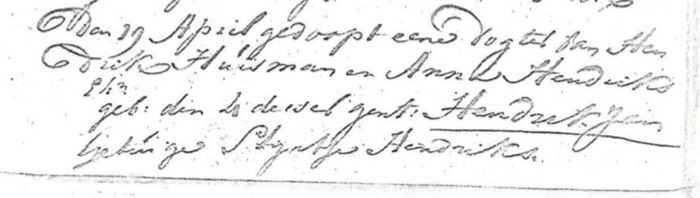 Den 19 April gedoopt eene Dogter van Hen
drik Huisman en Anna Hendriks
Ehn
geb: den 20 deisel gent: Hendrik Jan
getuige Styntje Hendriks.